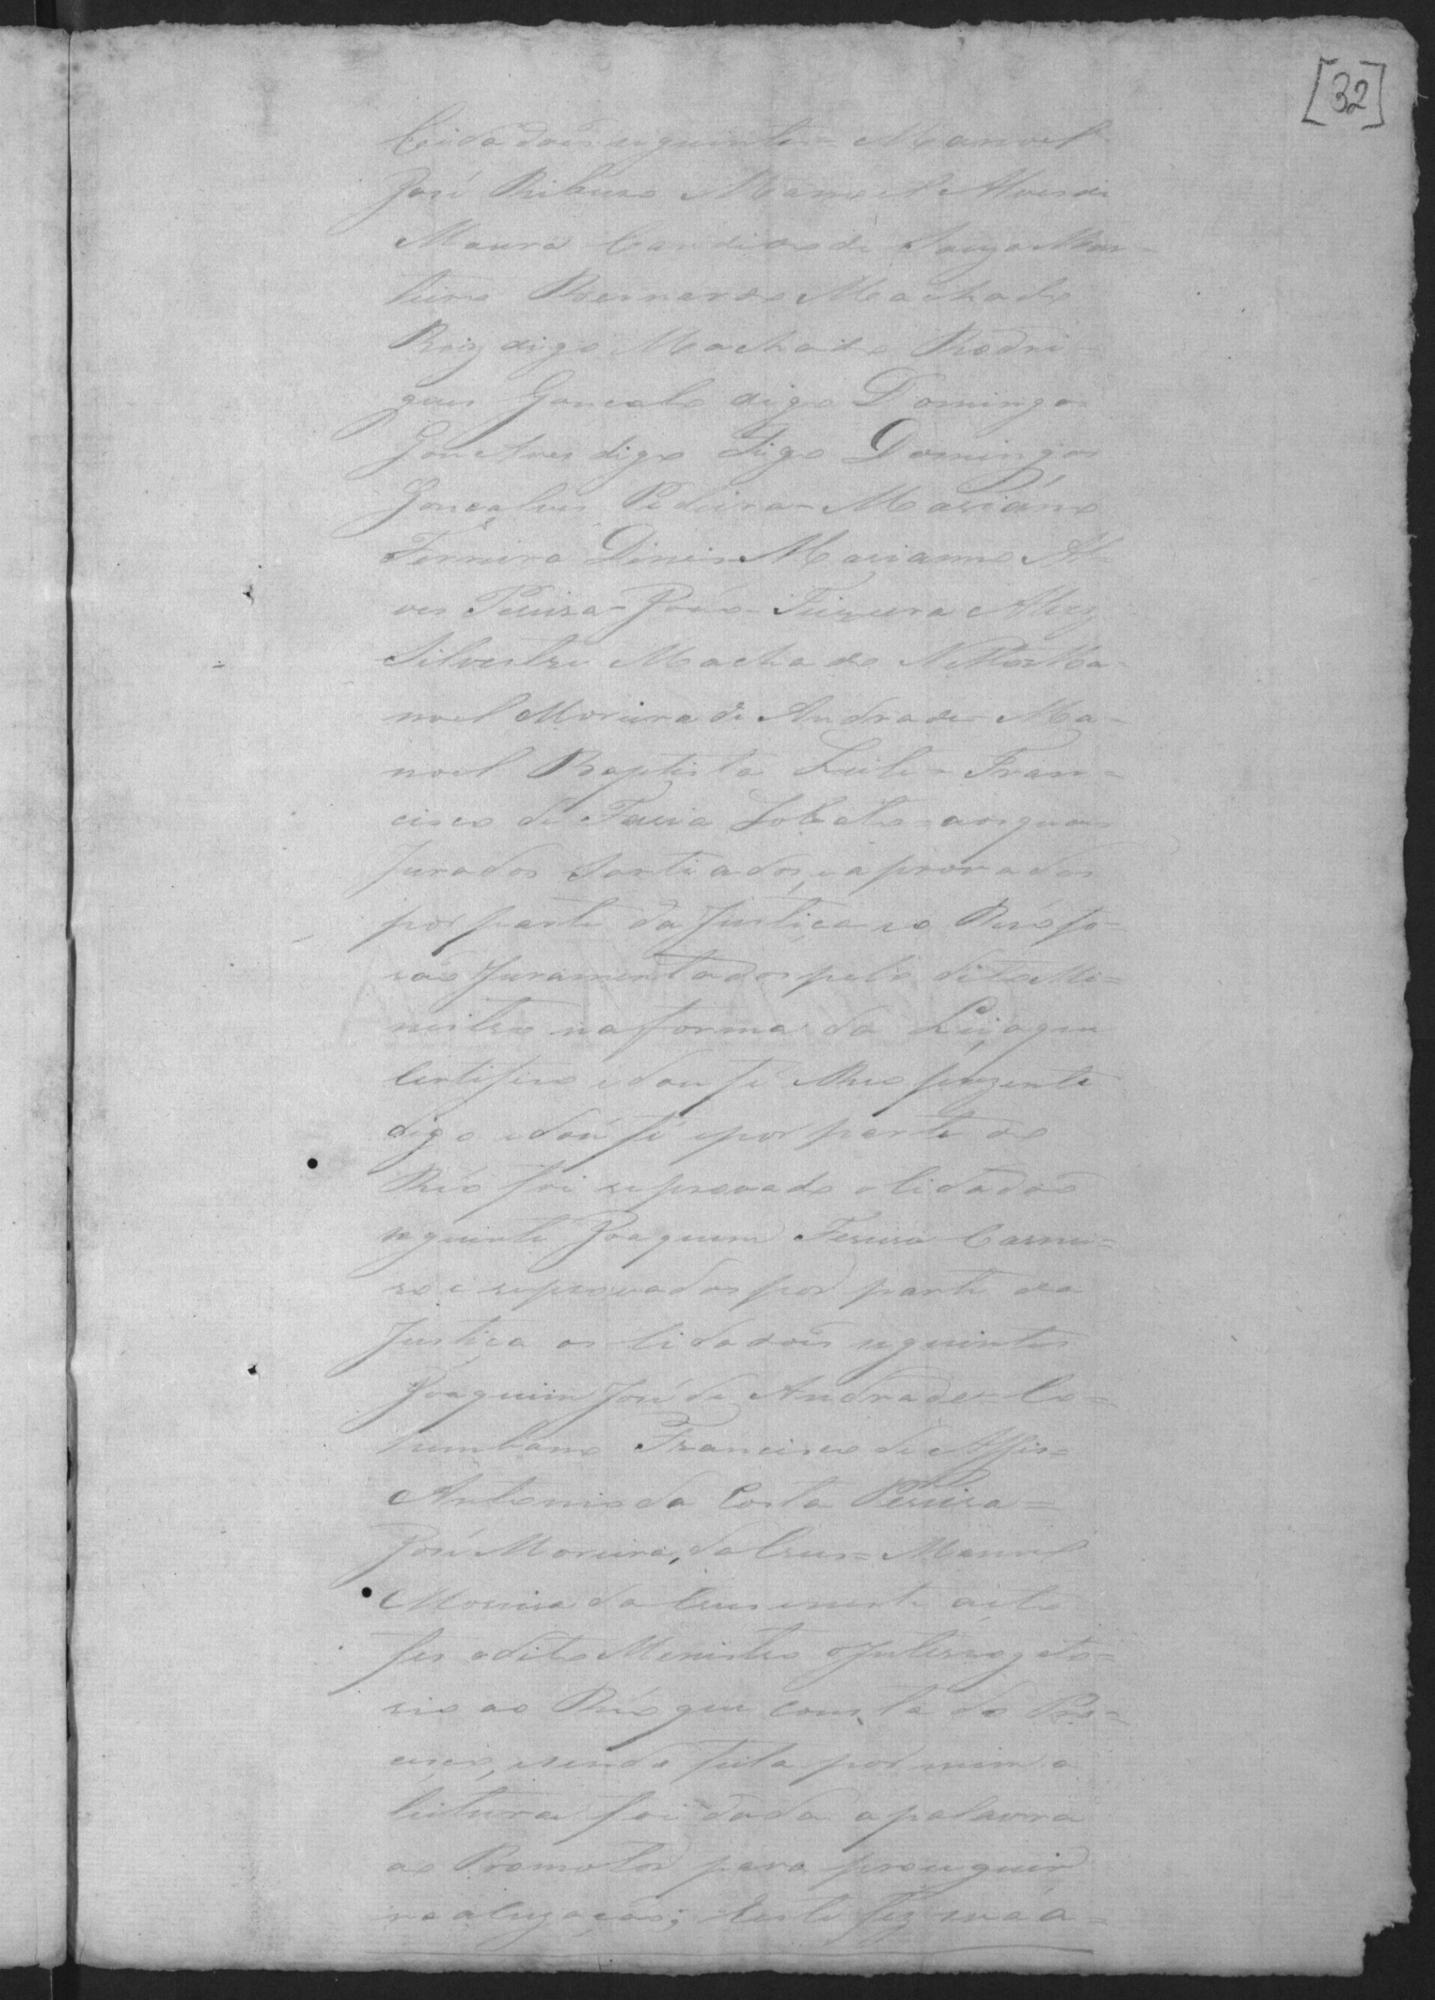 [32]
Cidadoins seguintes = Manoel
José Ribeiro Manoel Alves de
Moura Candido de Souza Mar-
tins Bernardo Machado
Roiz digo Machado Rodri-
gues Goncalo digo Domingos
Gonçalves digo digo Domingos
Gonçalves Pedeira - Mariano
Ferreira Dinis Marianno Al-
ves Pereira - João Teixeira Alvez
Silvestre Machado Netto Ma-
noel Moreira de Andrade - Ma-
noel Baptista Leite - Fran-
cisco de Faria Lobato = aos quais
Jurados sortiados, e aprovados
por parte da Justiça e o Reo fo-
rão Juramentados pelo dito Mi-
nistro na forma da Lei, do que
certifico e dou fé
digo e dou fé e por parte do
Réo foi reprovado o Cidadão
seguinte Joaquim Ferreira Carnei-
ro e reprovados por parte da
Justiça os Cidadois seguintes
Joaquim José de Andrade = Co-
lumbano Francisco de Assis =
Antonio da Costa Pereira =
José Moreira, da Crus = Manoel
Moreira da Crus e neste acto
fes o dito Ministro o Interrogato-
rio ao Réo que consta do Pro-
cesso, e sendo feita por mim a
leitura foi dada a palavra
ao Promotor para proseguir
na acuzação; Este fez sua a-